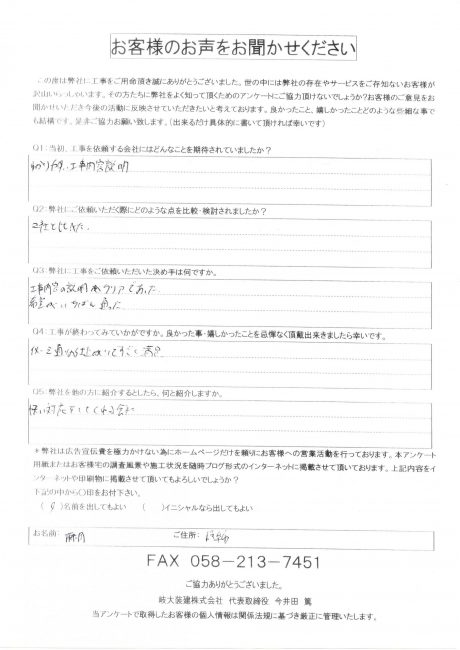 お客様のお声をお聞かせください
この度は弊社に工事をご用命頂き誠にありがとうございました。世の中には弊社の存在やサービスをご存知ないお客様が
沢山いらっしゃいます。その方たちに弊社をよく知って頂くためのアンケートにご協力頂けないでしょうか?お客様のご意見をお
聞かせいただき今後の活動に反映させていただきたいと考えております。良かったこと、嬉しかったことどのような些細な事で
も結構です。是非ご協力お願い致します。(出来るだけ具体的に書いて頂ければ幸いです)
Q1:当初、工事を依頼する会社にはどんなことを期待されていましたか?
工事内容説明
Q2:弊社にご依頼いただく際にどのような点を比較・検討されましたか?
Q3:弊社に工事をご依頼いただいた決め手は何ですか。
工事内容の説明がクリアであった
Q4:工事が終わってみていかがですか。良かった事・嬉しかったことを忌憚なく頂戴出来きましたら幸いです。
満足
Q5:弊社を他の方に紹介するとしたら、何と紹介しますか。
対応をしてくれる会社
*弊社は広告宣伝費を極力かけない為にホームページだけを頼りにお客様への営業活動を行っております。本アンケート
用紙またはお客様宅の調査風景や施工状況を随時ブログ形式のインターネットに掲載させて頂いております。上記内容をイ
ンターネットや印刷物に掲載させて頂いてもよろしいでしょうか?
下記の中から〇印をお付下さい。
( )名前を出してもよい ( )イニシャルなら出してもよい
お名前: ご住所:
FAX 058-213-7451
ご協力ありがとうございました。
岐大装建株式会社 代表取締役 今井田 篤
当アンケートで取得したお客様の個人情報は関係法規に基づき厳正に管理いたします。